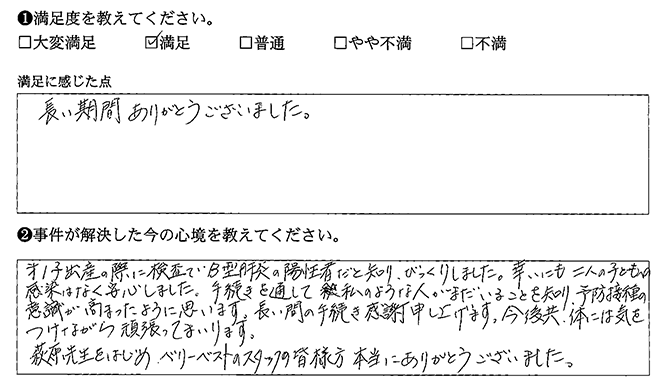 ❶満足度を教えてください。
□大変満足 ☑満足 □普通 □やや不満 □不満
満足に感じた点
長い期間ありがとうございました。
❷事件が解決した今の心境を教えてください。
第1子出産の際に検査でB型肝炎の陽性者だと知り、びっくりしました。幸いにも二人の子どもの
感染はなく安心しました。手続きを通して私のような人がまだいることを知り、予防接種の
意識が高まったように思います。長い間の手続き感謝申し上げます。今後共、体には気を
つけながら頑張ってまいります。
萩原先生をはじめ、ベリーベストのスタッフの皆様方本当にありがとうございました。